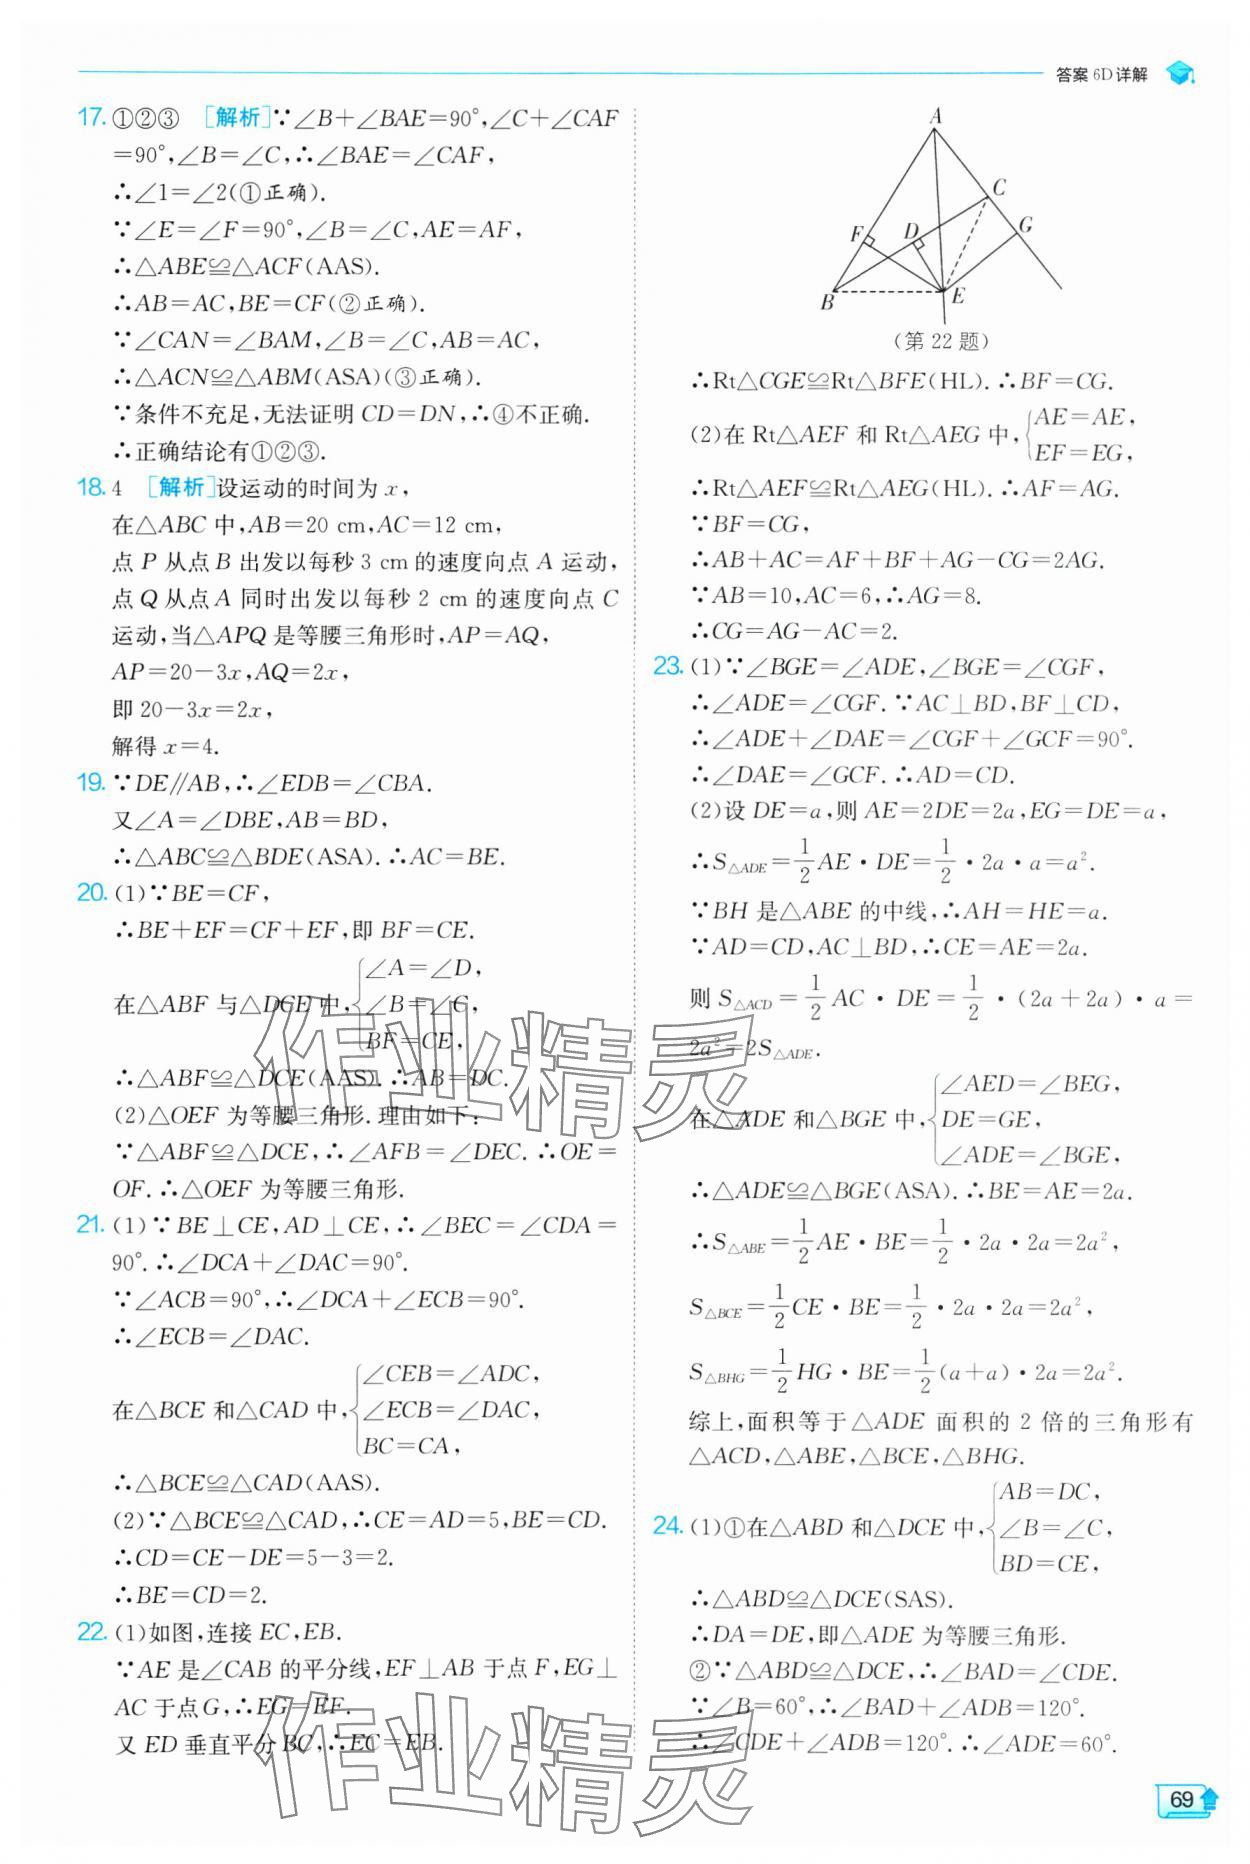 答案 6D 详解
17. ①②③ [解析]∵∠B+∠BAE=90°,∠C+∠CAF
=90°,∠B=∠C,∴∠BAE=∠CAF,
∴∠1=∠2(①正确).
∵∠E=∠F=90°,∠B=∠C,AE=AF,
∴△ABE≌△ACF(AAS).
∴AB=AC,BE=CF(②正确).
∵∠CAN=∠BAM,∠B=∠C,AB=AC,
∴△ACN≌△ABM(ASA)(③正确).
∵条件不充足,无法证明 CD=DN,∴④不正确.
∴正确结论有①②③.
18. 4 [解析]设运动的时间为 x,
在△ABC 中,AB=20 cm,AC=12 cm,
点 P 从点 B 出发以每秒 3 cm 的速度向点 A 运动,
点 Q 从点 A 同时出发以每秒 2 cm 的速度向点 C
运动,当△APQ 是等腰三角形时,AP=AQ,
AP=20-3x,AQ=2x,
即 20-3x=2x,
解得 x=4.
19. ∵DE∥AB,∴∠EDB=∠CBA.
又∠A=∠DBE,AB=BD,
∴△ABC≌△BDE(ASA).∴AC=BE.
20. (1)∵BE=CF,
∴BE+EF=CF+EF,即 BF=CE.
在△ABF 与△DCE 中,{∠A=∠D,
∠B=∠C,
BF=CE,
∴△ABF≌△DCE(AAS).∴AB=DC.
(2)△OEF 为等腰三角形.理由如下:
∵△ABF≌△DCE,∴∠AFB=∠DEC.∴OE=
OF.∴△OEF 为等腰三角形.
21. (1)∵BE⊥CE,AD⊥CE,∴∠BEC=∠CDA=
90°.∴∠DCA+∠DAC=90°.
∵∠ACB=90°,∴∠DCA+∠ECB=90°.
∴∠ECB=∠DAC.
在△BCE 和△CAD 中,{∠CEB=∠ADC,
∠ECB=∠DAC,
BC=CA,
∴△BCE≌△CAD(AAS).
(2)∵△BCE≌△CAD,∴CE=AD=5,BE=CD.
∴CD=CE-DE=5-3=2.
∴BE=CD=2.
22. (1)如图,连接 EC,EB.
∵AE 是∠CAB 的平分线,EF⊥AB 于点 F,EG⊥
AC 于点 G,∴EG=EF.
又 ED 垂直平分 BC,∴EC=EB.
A
C
G
F
D
B
E
(第 22 题)
∴Rt△CGE≌Rt△BFE(HL).∴BF=CG.
(2)在 Rt△AEF 和 Rt△AEG 中,{AE=AE,
EF=EG,
∴Rt△AEF≌Rt△AEG(HL).∴AF=AG.
∵BF=CG,
∴AB+AC=AF+BF+AG-CG=2AG.
∵AB=10,AC=6,∴AG=8.
∴CG=AG-AC=2.
23. (1)∵∠BGE=∠ADE,∠BGE=∠CGF,
∴∠ADE=∠CGF.∵AC⊥BD,BF⊥CD,
∴∠ADE+∠DAE=∠CGF+∠GCF=90°.
∴∠DAE=∠GCF.∴AD=CD.
(2)设 DE=a,则 AE=2DE=2a,EG=DE=a,
∴S△ADE=1/2 AE·DE=1/2·2a·a=a².
∵BH 是△ABE 的中线,∴AH=HE=a.
∵AD=CD,AC⊥BD,∴CE=AE=2a.
则 S△ACD=1/2 AC·DE=1/2·(2a+2a)·a=
2a²=2S△ADE.
在△ADE 和△BGE 中,{∠AED=∠BEG,
DE=GE,
∠ADE=∠BGE,
∴△ADE≌△BGE(ASA).∴BE=AE=2a.
∴S△ABE=1/2 AE·BE=1/2·2a·2a=2a²,
S△BCE=1/2 CE·BE=1/2·2a·2a=2a²,
S△BHG=1/2 HG·BE=1/2(a+a)·2a=2a².
综上,面积等于△ADE 面积的 2 倍的三角形有
△ACD,△ABE,△BCE,△BHG.
24. (1)①在△ABD 和△DCE 中,{AB=DC,
∠B=∠C,
BD=CE,
∴△ABD≌△DCE(SAS).
∴DA=DE,即△ADE 为等腰三角形.
②∵△ABD≌△DCE,∴∠BAD=∠CDE.
∵∠B=60°,∴∠BAD+∠ADB=120°.
∴∠CDE+∠ADB=120°.∴∠ADE=60°.
作业精灵
作业精灵
69